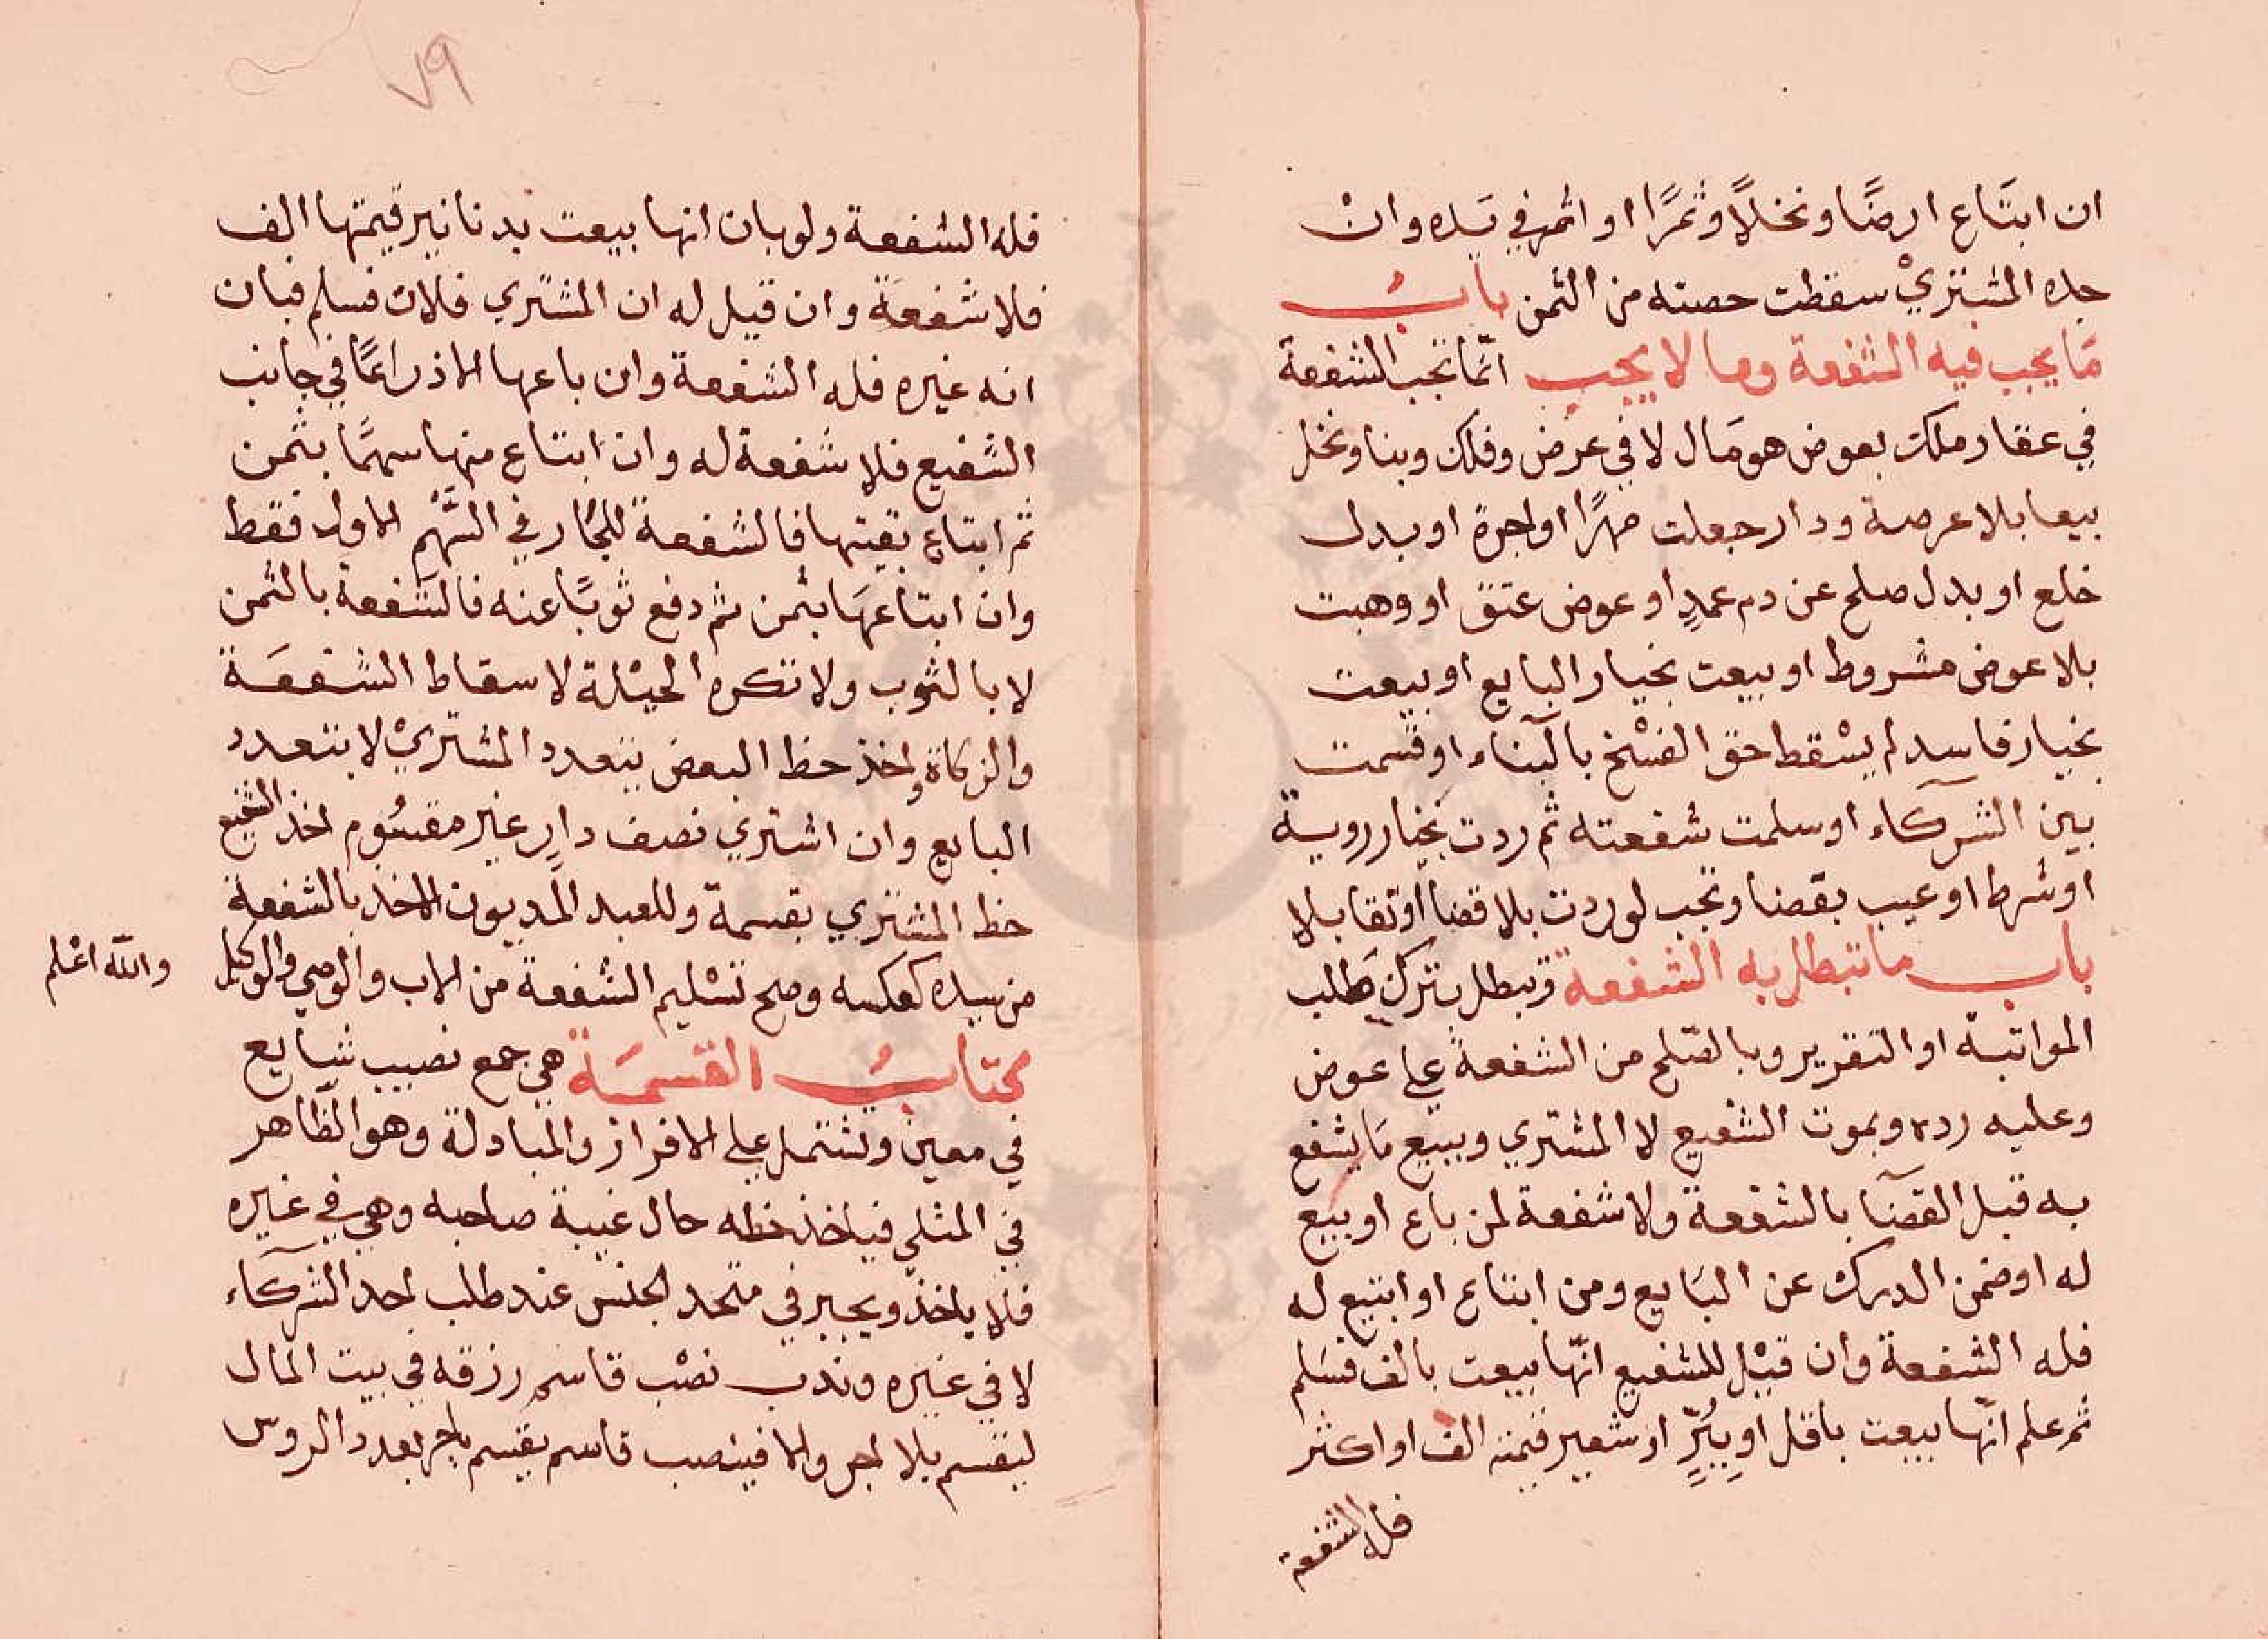 ان ابتاع ارضًا ونخلًا وثمرًا او اثمر في يده وان
جده المشتري سقطت حصته من الثمن باب
ما يجب فيه الشفعة وما لا يجب انما تجب الشفعة
في عقار ملك بعوض هو مال لا في عرض وفلك وبنا ونخل
بيعا بلا عرصة ودار جعلت مهرًا او اجرة او بدل
خلع او بدل صلح عن دم عمدٍ او عوض عتق او وهبت
بلا عوض مشروط او بيعت بخيار البايع او بيعت
بخيار فاسد لم يسقط حق الفسخ بالبناء او قسمت
بين الشركاء او سلمت شفعته ثم ردت بخيار روية
او شرط او عيب بقضا وتجب لو ردت بلا قضا او تقايلا
باب ما تبطل به الشفعة وتبطل بترك طلب
المواثبة او التقرير وبالصلح من الشفعة على عوض
وعليه رده وبموت الشفيع لا المشتري وببيع ما يشفع
به قبل القضا بالشفعة ولا شفعة لمن باع او بيع
له او ضمن الدرك عن البايع ومن ابتاع او ابتيع له
فله الشفعة وان قيل للشفيع انها بيعت بالف فسلم
ثم علم انها بيعت باقل او ببرٍّ او شعير قيمته الف او اكثر
فله الشفعة
٧٩
فله الشفعة ولو بان انها بيعت بدنانير قيمتها الف
فلا شفعة وان قيل له ان المشتري فلان فسلم فبان
انه غيره فله الشفعة وان باعها الا ذراعًا في جانب
الشفيع فلا شفعة له وان ابتاع منها سهمًا بثمن
ثم ابتاع بقيتها فالشفعة للجار في السهم الاول فقط
وان ابتاعها بثمن ثم دفع ثوبًا عنه فالشفعة بالثمن
لا بالثوب ولا تكره الحيلة لاسقاط الشفعة
والزكاة واخذ حظ البعض بتعدد المشتري لا بتعدد
البايع وان اشتري نصف دارٍ غير مقسوم اخذ الشفيع
حظ المشتري بقسمة وللعبد المديون الاخذ بالشفعة
من سيده كعكسه وصح تسليم الشفعة من الاب والوصي والوكيل
والله اعلم
كتاب القسمة هي جمع نصيب شايع
في معين وتشتمل على الافراز والمبادلة وهو الظاهر
في المثلي فياخذ حظه حال غيبة صاحبه وهي في غيره
فلا ياخذ ويجبر في متحد الجنس عند طلب احد الشركاء
لا في غيره وندب نصب قاسم رزقه في بيت المال
ليقسم بلا اجر والا فينصب قاسم يقسم باجر بعدد الروس